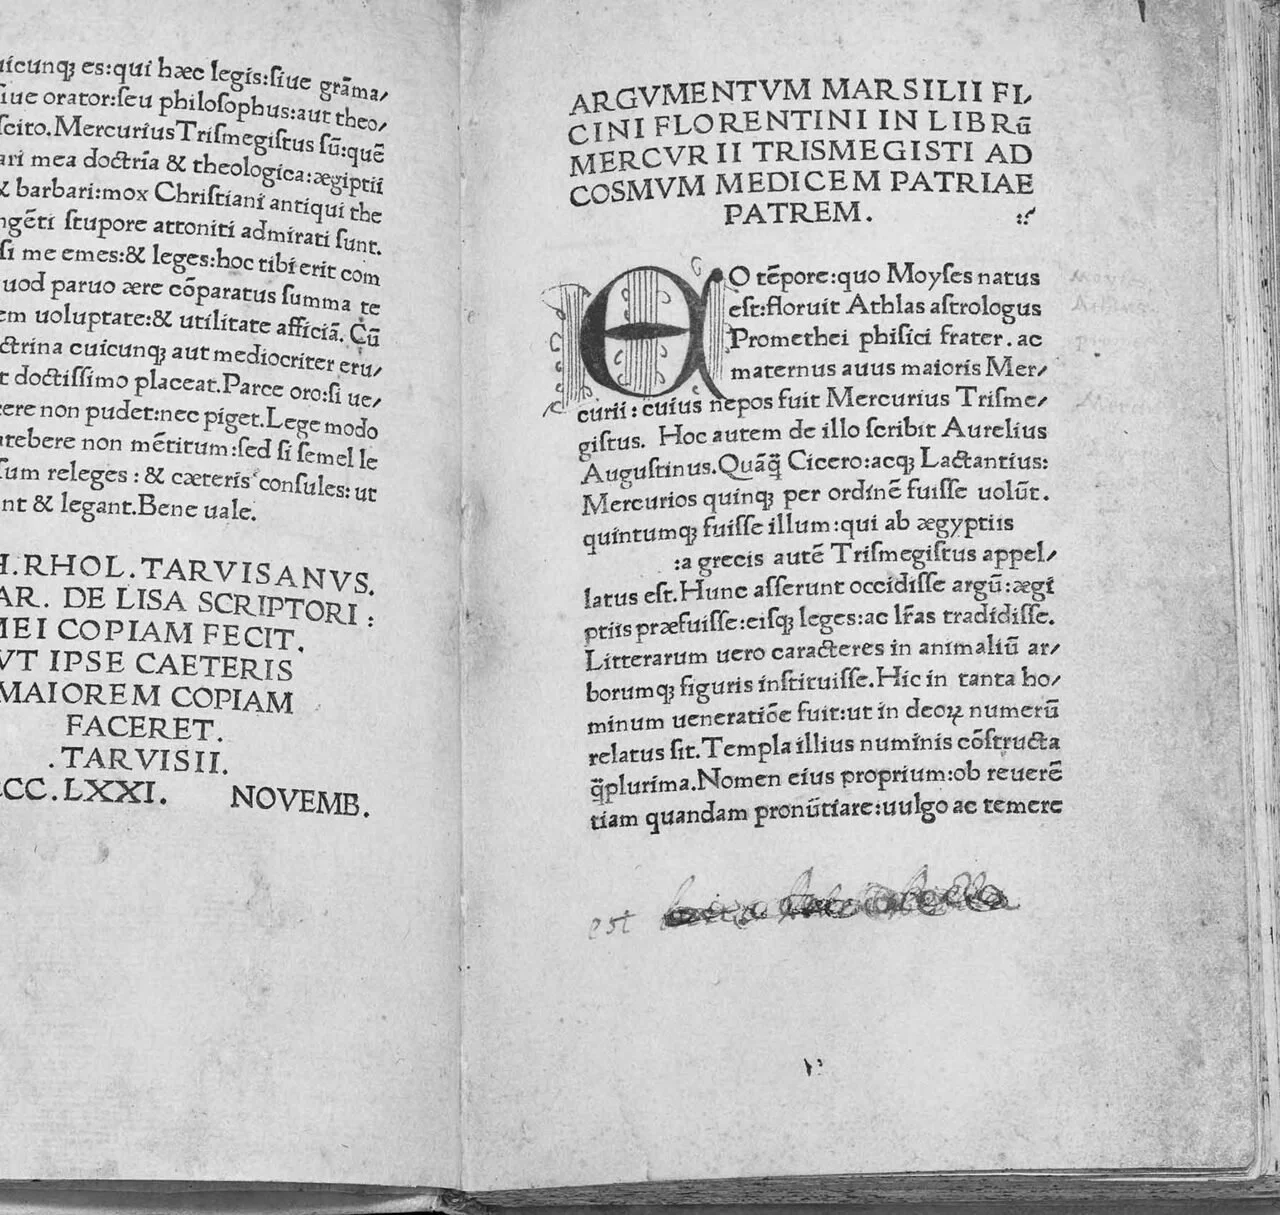 es:qui hæc legis:ſiue grãma/
orator:ſeu philoſophus:aut theo/
MercuriusTriſmegiſtus ſũ:quẽ
mea doctrĩa & theologica:ægiptii
& barbari:mox Chriſtiani antiqui the
ſtupore attoniti admirati ſunt.
ſi me emes:& leges:hoc tibi erit com
paruo ære cõparatus ſumma te
uoluptate:& utilitate afficiã. Cũ
cuicunqꝫ aut mediocriter eru/
doctiſſimo placeat.Parce oro:ſi ue/
non pudet:nec piget.Lege modo
non mẽtitum:ſed ſi ſemel le
releges : & cæteris conſules: ut
& legant.Bene uale.
RHOL.TARVISANVS.
DE LISA SCRIPTORI :
MEI COPIAM FECIT.
VT IPSE CAETERIS
MAIOREM COPIAM
FACERET.
.TARVISII.
LXXI. NOVEMB.
ARGVMENTVM MARSILII FI/
CINI FLORENTINI IN LIBRũ
MERCVRII TRISMEGISTI AD
COSMVM MEDICEM PATRIAE
PATREM.
EO tẽpore:quo Moyſes natus
eſt:floruit Athlas aſtrologus
Promethei phiſici frater. ac
maternus auus maioris Mer/
curii : cuius nepos fuit Mercurius Triſme/
giſtus. Hoc autem de illo ſcribit Aurelius
Auguſtinus.Quãq̃ Cicero:acqꝫ Lactantius:
Mercurios quinqꝫ per ordinẽ fuiſſe uolũt.
quintumqꝫ fuiſſe illum:qui ab ægyptiis
:a grecis autẽ Triſmegiſtus appel/
latus eſt.Hunc aſſerunt occidiſſe argũ:ægi
ptiis præfuiſſe:eiſqꝫ leges:ac lr̃as tradidiſſe.
Litterarum uero caracteres in animaliũ ar/
borumqꝫ figuris inſtituiſſe.Hic in tanta ho/
minum ueneratiõe fuit:ut in deoꝝ numerũ
relatus ſit.Templa illius numinis cõſtructa
q̃plurima.Nomen eius proprium:ob reuerẽ
tiam quandam pronũtiare:uulgo ac temere
est